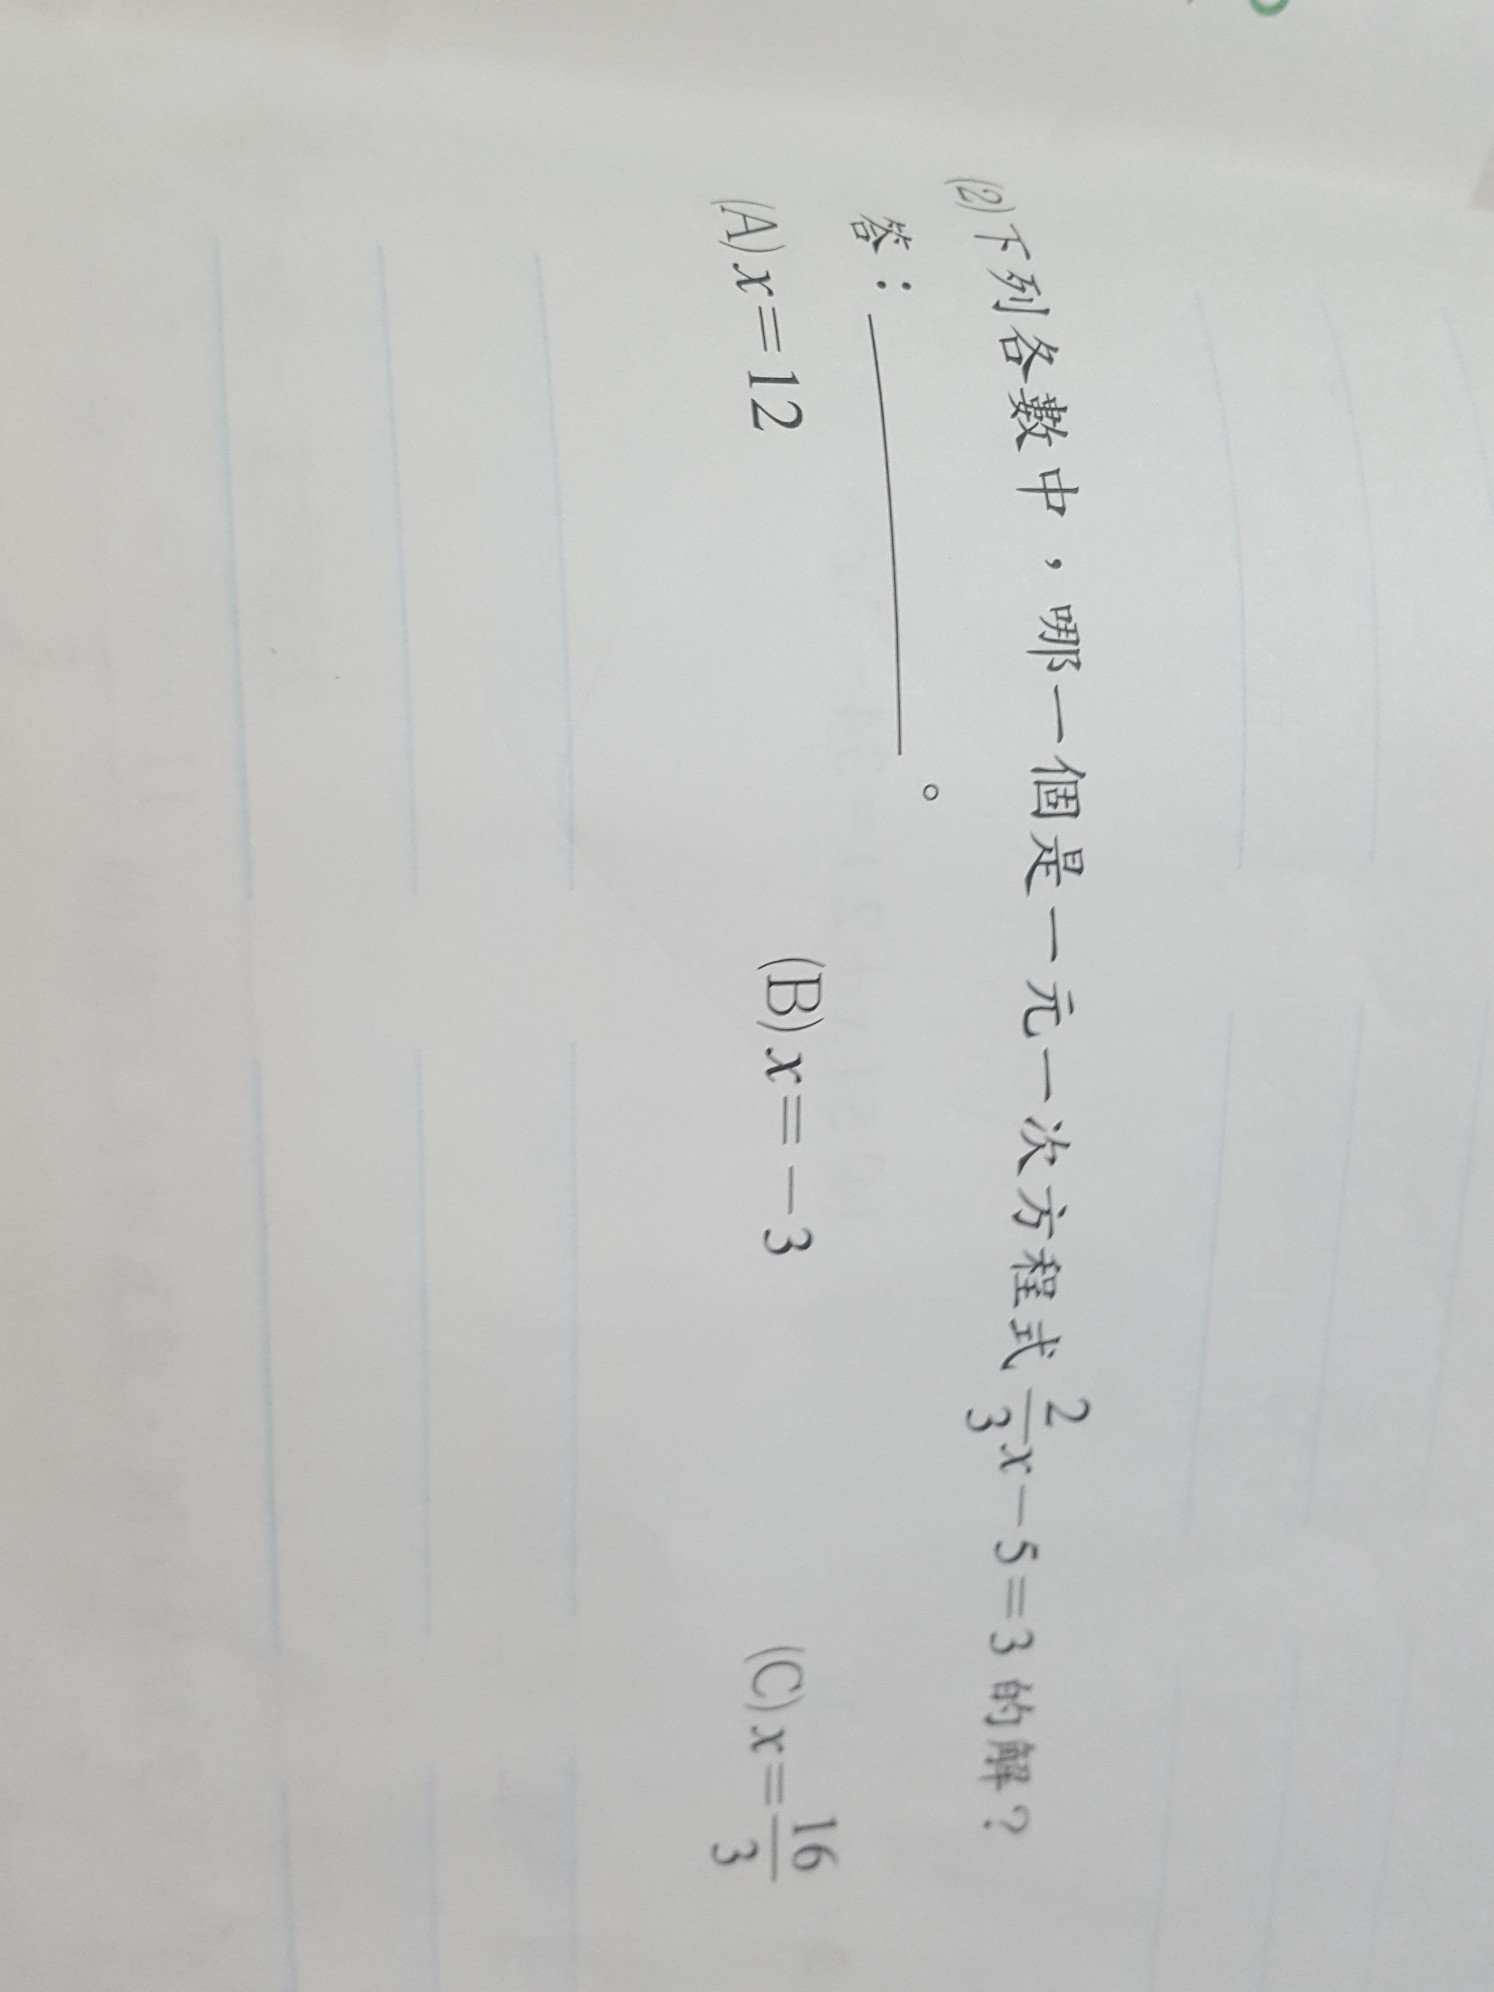 (2)下列各數中，哪一個是一元一次方程式 2/3 x－5＝3 的解？
答：＿＿＿＿＿＿。
(A)x＝12 (B)x＝－3 (C)x＝16/3